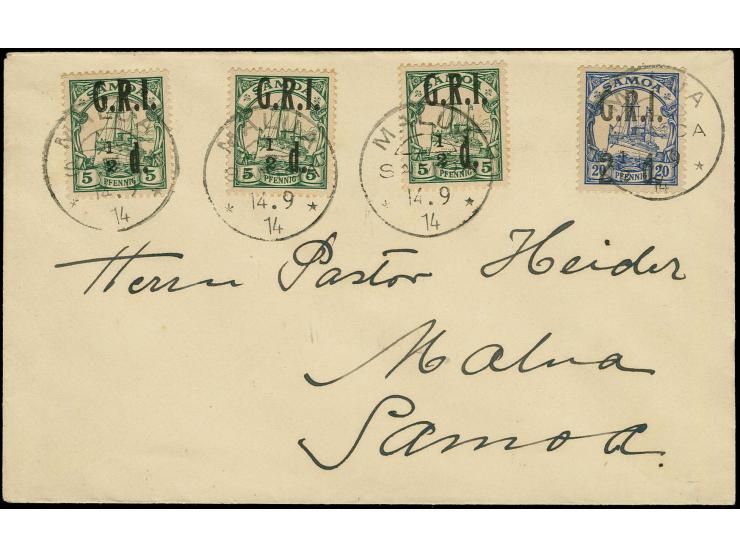 SAMOA G.R.I. 1/2 d. 5 PFENNIG 5
SAMOA G.R.I. 1/2 d. 5 PFENNIG 5
SAMOA G.R.I. 1/2 d. 5 PFENNIG 5
SAMOA G.R.I. 2 1/2 d. 20 PFENNIG 20
14.9
14
14.9
14
14.9
14
14
Herrn Pastor Heider
Malua
Samoa.